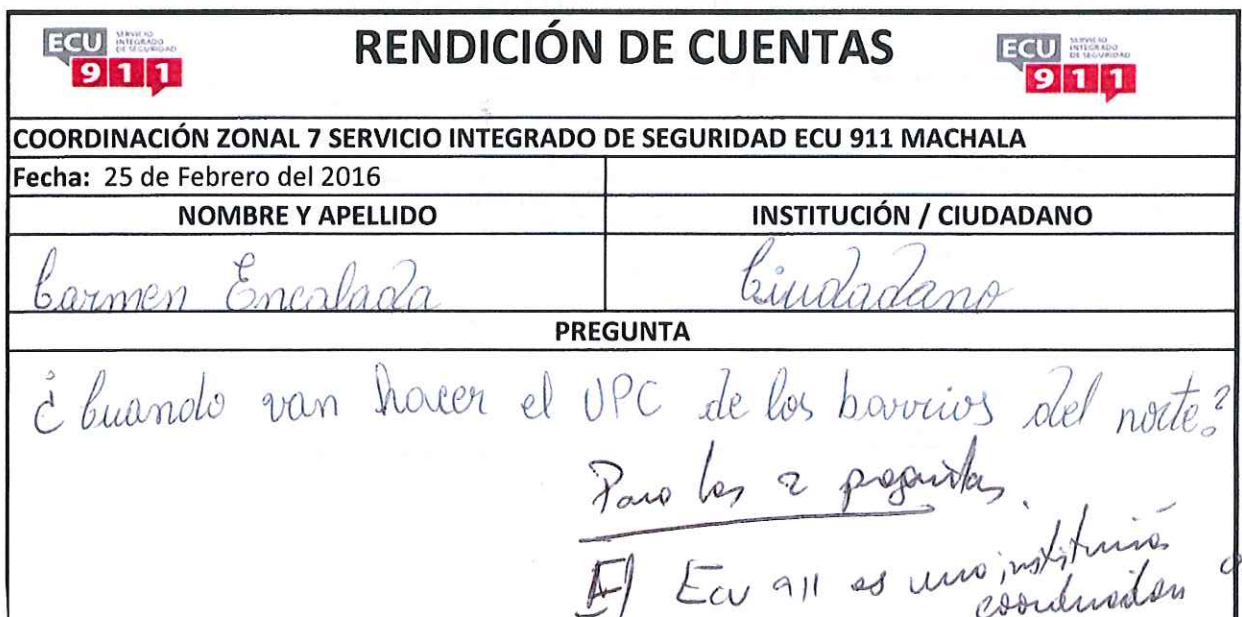 ECU SERVICIO INTEGRADO DE SEGURIDAD
911
RENDICIÓN DE CUENTAS
ECU SERVICIO INTEGRADO DE SEGURIDAD
911
COORDINACIÓN ZONAL 7 SERVICIO INTEGRADO DE SEGURIDAD ECU 911 MACHALA
Fecha: 25 de Febrero del 2016
NOMBRE Y APELLIDO
INSTITUCIÓN / CIUDADANO
Carmen Encalada
Ciudadano
PREGUNTA
¿Cuando van hacer el UPC de los barrios del norte?
Para las 2 preguntas.
El Ecu 911 es una institución
coordinadora